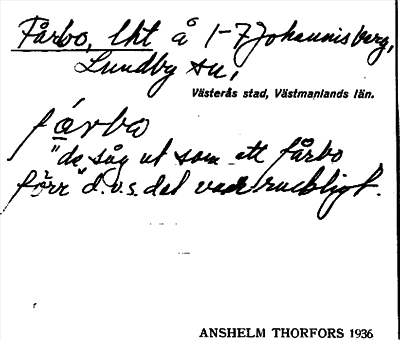 Fårbo, lht å 1-7 Johannisberg,
Lundby sn,
Västerås stad, Västmanlands län.
fárbo
"de såg ut som ett fårbo
förr" d.v.s. det var ruckligt.
ANSHELM THORFORS 1936